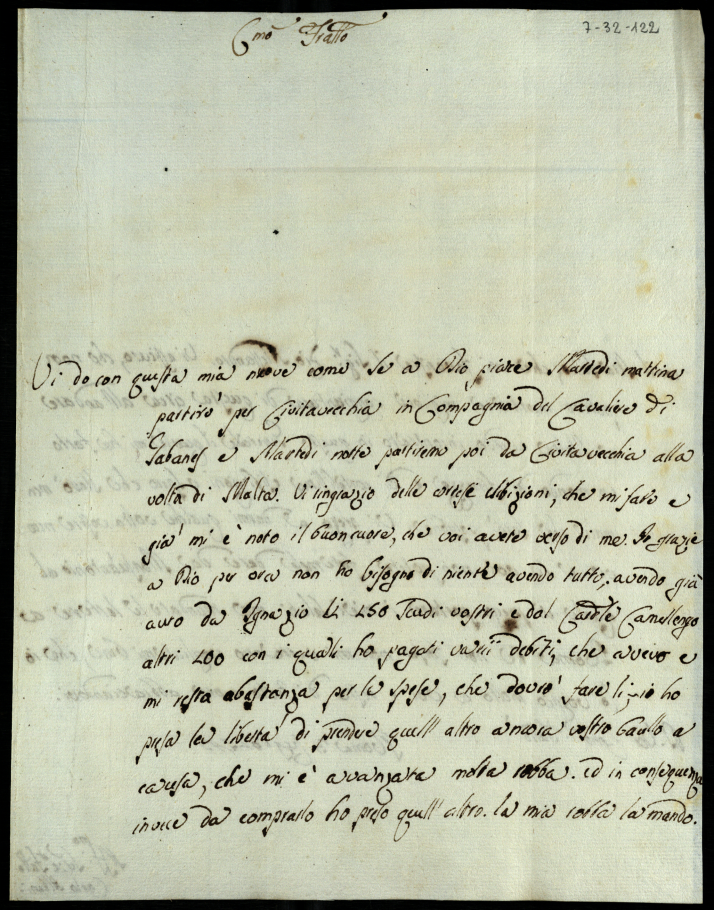 Cmõ Fratto
7-32-122
Vi do con questa mia nuove come se a Dio piace Martedi mattina
partiro' per Civitavecchia in Compagnia del Cavaliere di
e Martedi notte partiremo poi da Civitavecchia alla
volta di Malta. Vi ringrazio delle cortesi esibizioni, che mi fate e
gia' mi è noto il buon cuore, che voi avete verso di me. Io grazie
a Dio per ora non ho bisogno di niente avendo tutto, avendo già
auto da Ignazio li 450 Scudi vostri e dal Carle Camellengo
altri 400 con i quali ho pagati varii debiti, che avevo e
mi resta abastanza per le spese, che dovro' fare li, io ho
presa la liberta' di prendere quell altro ancora vostro baullo a
causa, che mi è avanzata molta robba. ed in conseguenza
invece da comprarlo ho preso quell' altro. la mia robba la mando.